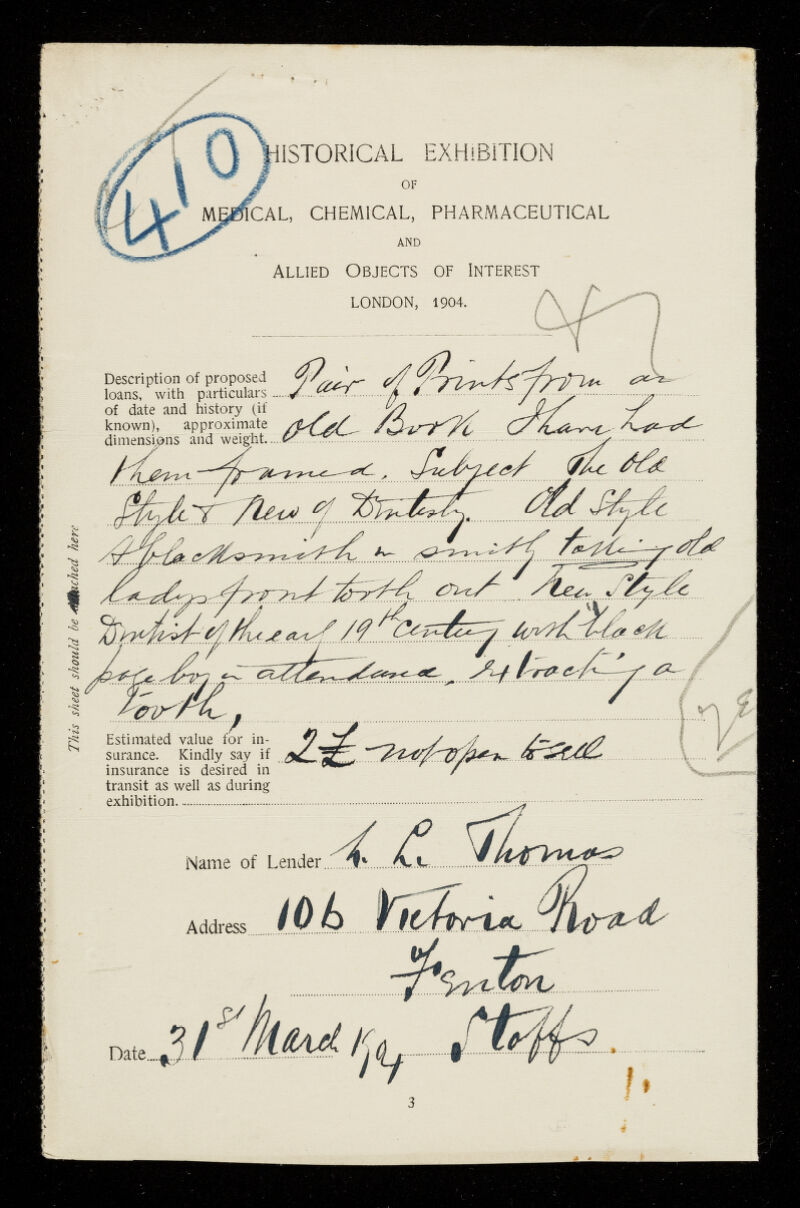 410
HISTORICAL EXHIBITION
OF
MEDICAL, CHEMICAL, PHARMACEUTICAL
AND
ALLIED OBJECTS OF INTEREST
LONDON, 1904.
Description of proposed loans, with particulars of date and history (if known), approximate dimensions and weight.
Pair of Prints from an
old Book I have had
them framed. Subject The Old
Style & New of Dentistry. Old Style
A blacksmith in smithy taking old
ladys front tooth out New Style
Dentist of the earl 19th century with black
page boy in attendance, extracting a
tooth,
This sheet should be attached here
Estimated value for insurance. Kindly say if insurance is desired in transit as well as during exhibition.
2£ not open to sell
Name of Lender
L. Thomas
Address 106 Victoria Road
Fenton
Date 31st March 1904 Staffs.
3